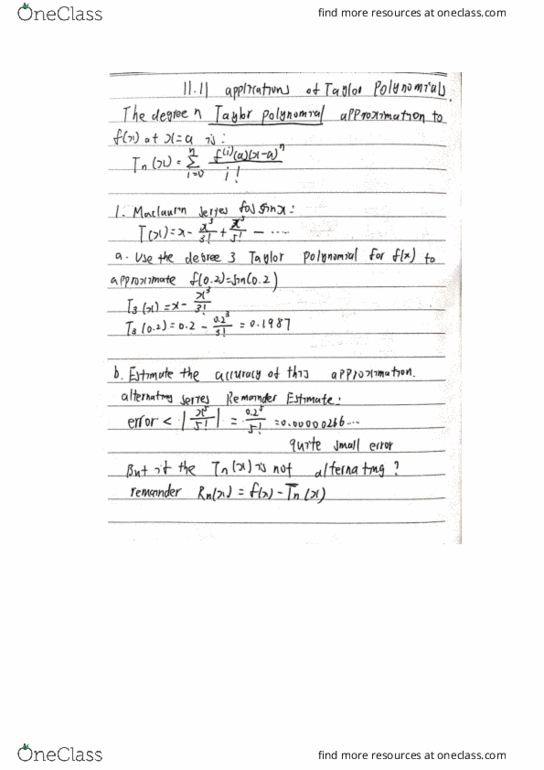 OneClass
find more resources at oneclass.com
11.11 applications of Taylor Polynomials.
The degree n Taylor polynomial approximation to
f(x) at x=a is:
Tn(x) = n∑i=0 f^(i)(a)(x-a)^n / i!
1. Maclaurin series for sinx:
T(x) = x - x^3/3! + x^5/5! - ....
a. Use the degree 3 Taylor polynomial for f(x) to
approximate f(0.2)=sin(0.2)
T3(x) = x - x^3/3!
T3(0.2) = 0.2 - 0.2^3/3! = 0.1987
b. Estimate the accuracy of this approximation.
alternating series Remainder Estimate:
error < |x^5/5!| = 0.2^5/5! = 0.00000266...
quite small error
But if the Tn(x) is not alternating?
remainder Rn(x) = f(x) - Tn(x)
OneClass
find more resources at oneclass.com